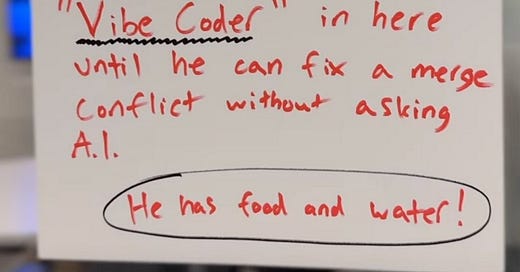 "Vibe Coder" in here
until he can fix a merge
conflict without asking
A.I.
He has food and water!